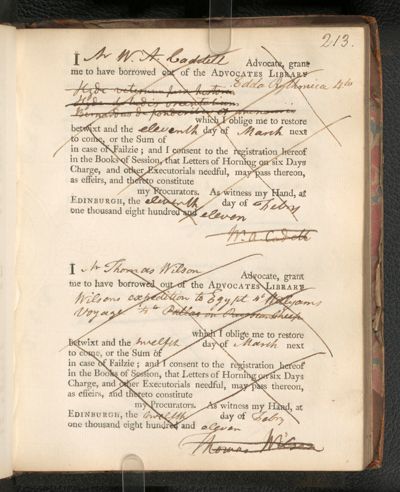 213.
I Mr W. A. Cadell Advocate, grant
me to have borrowed out of the ADVOCATES LIBRARY
Edda Rythmica 4to
Hyde
Hyde
Bernardus de
which I oblige me to restore
betwixt and the eleventh day of March next
to come, or the Sum of
in case of Failzie; and I consent to the registration hereof
in the Books of Session, that Letters of Horning on six Days
Charge, and other Executorials needful, may pass thereon,
as effeirs, and thereto constitute
my Procurators. As witness my Hand, at
EDINBURGH, the eleventh day of Febry
one thousand eight hundred and eleven
W. A. Cadell
I Mr Thomas Wilson
Advocate, grant
me to have borrowed out of the ADVOCATES LIBRARY
Wilsons expedition to Egypt 4to
Voyage 4to
which I oblige me to restore
betwixt and the twelfth day of March next
to come, or the Sum of
in case of Failzie; and I consent to the registration hereof
in the Books of Session, that Letters of Horning on six Days
Charge, and other Executorials needful, may pass thereon,
as effeirs, and thereto constitute
my Procurators. As witness my Hand, at
EDINBURGH, the twelfth day of Febry
one thousand eight hundred and eleven
Thomas Wilson